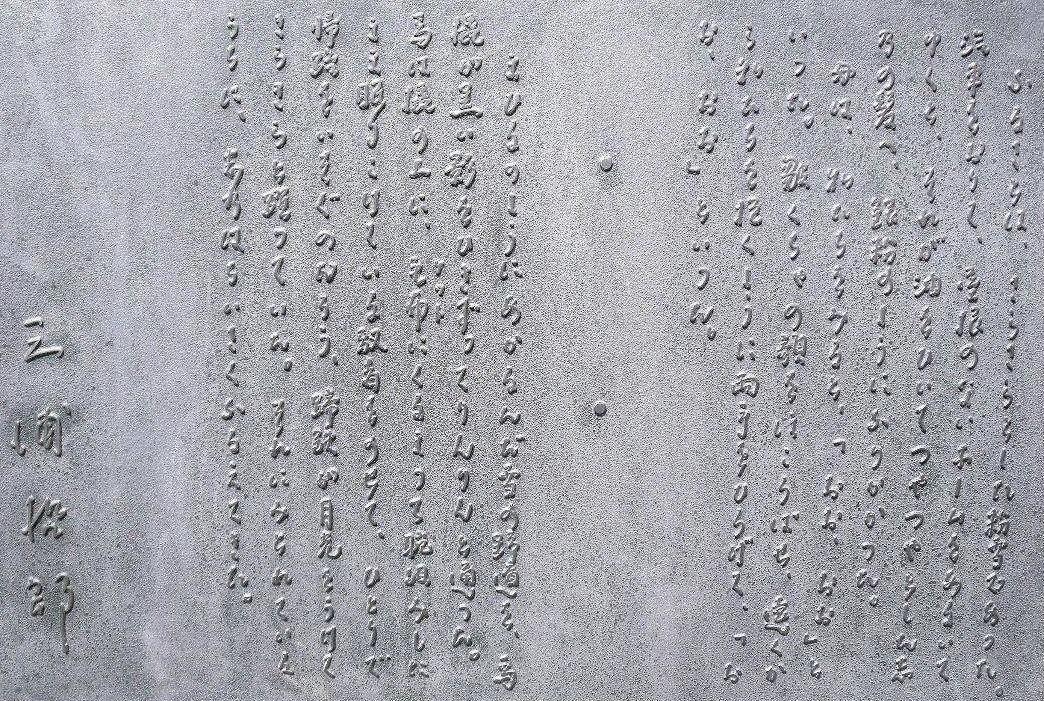 ふるさとは、さらさらとした粉雪であった。
汽車をおりて、屋根のないホームをあるいて
ゆくと、それが油をひいてつやつやした志
乃の髪へ、銀粉のようにふりかかった。
母は、私たちをみると、「おお、おお」と
いった。皺くちゃの顔をほころばせ、遠くか
ら私たちを抱くように両手をひろげて、「お
お、おお」といった。
まひるのようにあかるんだ雪の野道を、馬
橇が黒い影をひき下ってりんりんと通った。
馬は橇の上に、毛布にくるまって腕組みした
まま眠りこけている馭者をのせて、ひとりで
帰路をいそぐのだろう、蹄鉄が月光をうけて
きらきらと躍っていた。それにみとれていた
うちに、志乃はちいさくふるえてきた。
三浦哲郎